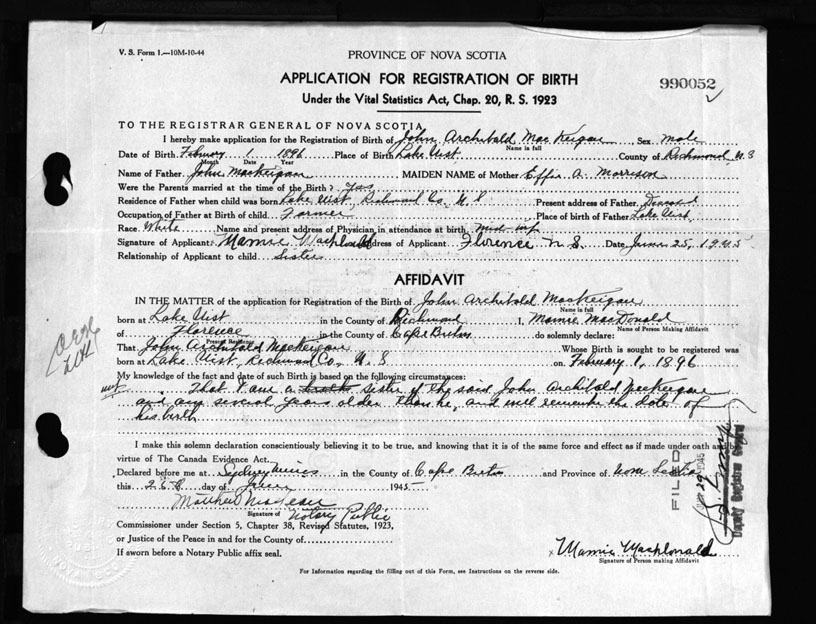 V. S. Form 1.—10M-10-44
PROVINCE OF NOVA SCOTIA
APPLICATION FOR REGISTRATION OF BIRTH
990052
Under the Vital Statistics Act, Chap. 20, R. S. 1923
TO THE REGISTRAR GENERAL OF NOVA SCOTIA
I hereby make application for the Registration of Birth of John Archibald MacKeigan Sex male
Name in full
Date of Birth February 1 1896 Place of Birth Lake Uist County of Richmond N S
Month Date Year
Name of Father John MacKeigan MAIDEN NAME of Mother Effie A. Morrison
Were the Parents married at the time of the Birth? Yes
Residence of Father when child was born Lake Uist, Richmond Co. N S Present address of Father, Deceased
Occupation of Father at Birth of child Farmer Place of birth of Father Lake Uist
Race White Name and present address of Physician in attendance at birth mid wife
Signature of Applicant Mamie MacDonald Address of Applicant Florence N S. Date June 25, 1945
Relationship of Applicant to child Sister
AFFIDAVIT
IN THE MATTER of the application for Registration of the Birth of John Archibald MacKeigan
Name in full
born at Lake Uist in the County of Richmond I, Mamie MacDonald
Name of Person Making Affidavit
of Florence in the County of Cape Breton do solemnly declare:
Present Residence
That John Archibald MacKeigan Whose Birth is sought to be registered was
born at Lake Uist, Richmond Co., N S on February 1, 1896
My knowledge of the fact and date of such Birth is based on the following circumstances:
That I am a sister of the said John Archibald MacKeigan
and am several years older than he, and well remember the date of
his birth
I make this solemn declaration conscientiously believing it to be true, and knowing that it is of the same force and effect as if made under oath and by
virtue of The Canada Evidence Act.
Declared before me at Sydney Mines in the County of Cape Breton and Province of Nova Scotia
this 26th day of June 1945
Matthew
Signature of Notary Public
Commissioner under Section 5, Chapter 38, Revised Statutes, 1923,
or Justice of the Peace in and for the County of
If sworn before a Notary Public affix seal.
x Mamie MacDonald
Signature of Person making Affidavit
For Information regarding the filling out of this Form, see Instructions on the reverse side.
FILED
1945
Deputy Registrar General